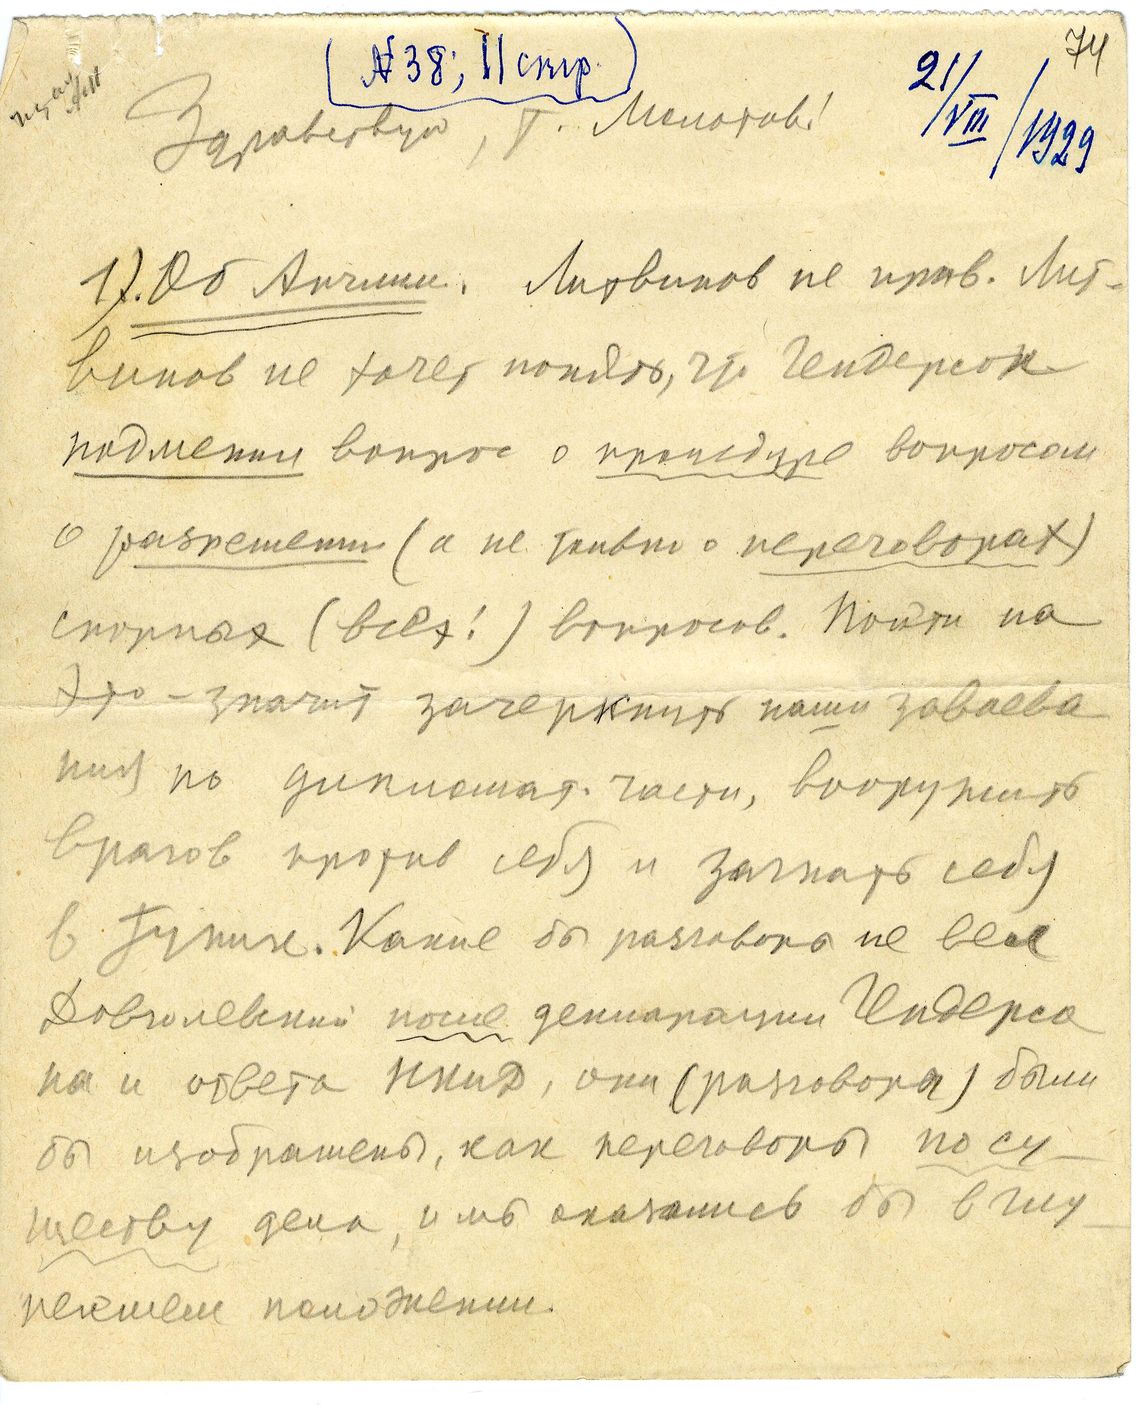 74
(№ 38; 11 стр.)
21/VIII/1929
Здравствуй, т. Молотов!
1). Об Англии. Литвинов не прав. Лит-
винов не хочет понять, что Гендерсон
подменил вопрос о процедуре вопросом
о разрешении (а не только о переговорах)
спорных (всех!) вопросов. Пойти на
это – значит зачеркнуть наши завоева
ния по дипломат. части, вооружить
врагов против себя и загнать себя
в тупик. Какие бы разговоры не вел
Довголевский после декларации Гендерсо
на и ответа НКИД, они (разговоры) были
бы изображены, как переговоры по су-
ществу дела, и мы оказались бы в глу-
пейшем положении.